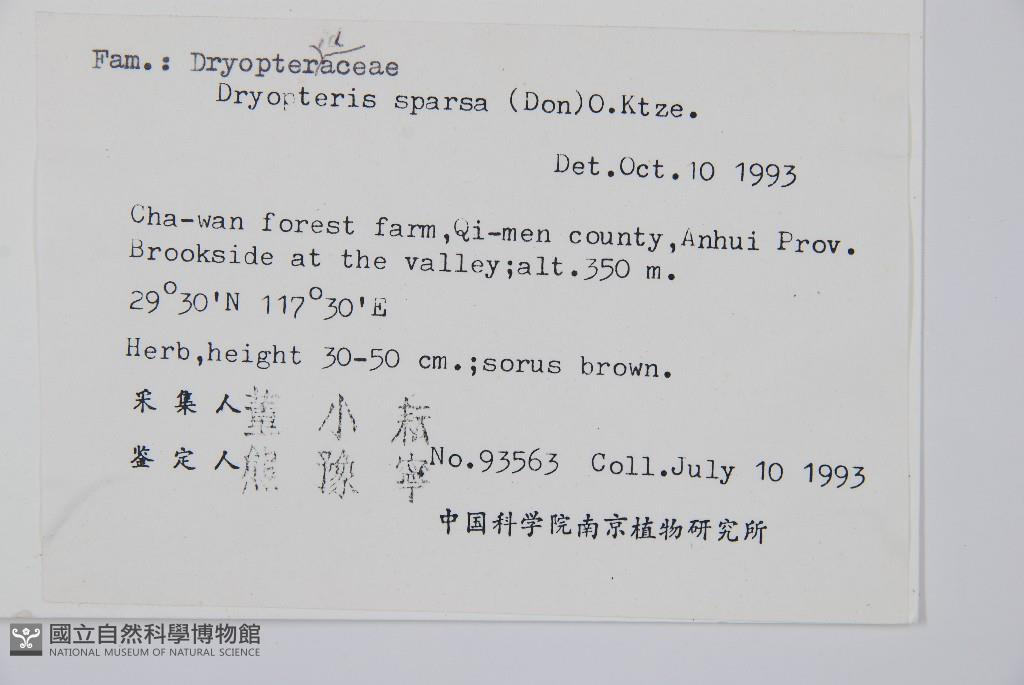 Fam.: Dryopteraceae
id
Dryopteris sparsa (Don)O.Ktze.
Det.Oct.10 1993
Cha-wan forest farm,Qi-men county,Anhui Prov.
Brookside at the valley;alt.350 m.
29°30'N 117°30'E
Herb,height 30-50 cm.;sorus brown.
采集人 董小
鉴定人 熊豫寧 No.93563 Coll.July 10 1993
中国科学院南京植物研究所
國立自然科學博物館
NATIONAL MUSEUM OF NATURAL SCIENCE